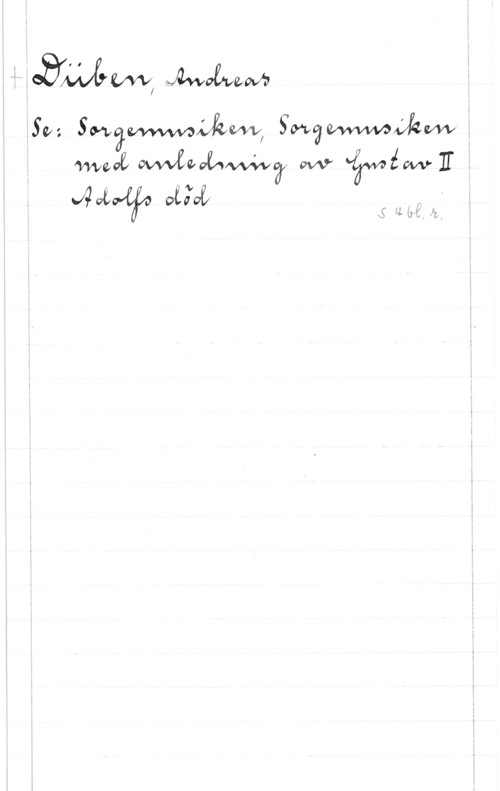 + Düben, Andreas
Se: Sorgemusiken, Sorgemusiken
med anledning av Gustav II
Adolfs död
S 4 bl. r.